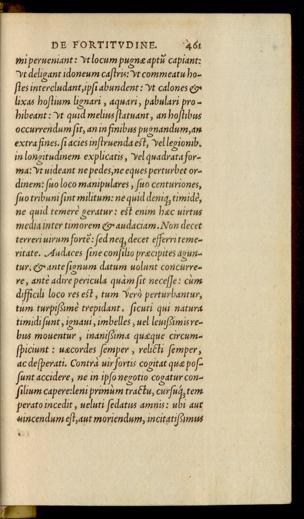 DE FORTITVDINE. 461
mi perueniant: vt locum pugnæ aptũ capiant:
vt deligant idoneum castris: vt commeatu ho-
stes intercludant, ipsi abundent: vt calones &
lixas hostium lignari, aquari, pabulari pro-
hibeant: vt quid melius statuant, an hostibus
occurrendum sit, an in finibus pugnandum, an
extra fines. si acies instruenda est, vel legionib.
in longitudinem explicatis, vel quadrata for-
ma: vt uideant ne pedes, ne eques perturbet or-
dinem: suo loco manipulares, suo centuriones,
suo tribuni sint militum: ne quid deniq; timidè,
ne quid temerè geratur: est enim hæc uirtus
media inter timorem & audaciam. Non decet
terreri uirum fortẽ: sed neq; decet efferri teme-
ritate. Audaces sine consilio præcipites agun-
tur, & ante signum datum uolunt concurre-
re, antè adire pericula quàm sit necesse: cùm
difficili loco res est, tum verò perturbantur,
tum turpißimè trepidant. sicuti qui natura
timidi sunt, ignaui, imbelles, uel leuißimis re-
bus mouentur, inanißima quæque circum-
spiciunt: uæcordes semper, relicti semper,
ac desperati. Contrà uir fortis cogitat quæ pos-
sunt accidere, ne in ipso negotio cogatur con-
silium capere: leni primùm tractu, cursuq; tem
perato incedit, ueluti sedatus amnis: ubi aut
uincendum est, aut moriendum, incitatißimus